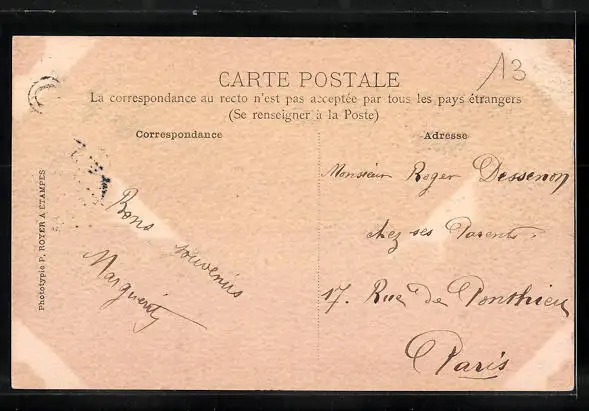 13
CARTE POSTALE
La correspondance au recto n'est pas acceptée par tous les pays étrangers
(Se renseigner à la Poste)
Correspondance
Adresse
Bons souvenirs
Marguerite
Monsieur Roger Dessenon
chez ses Parents
17. Rue de Ponthieu
Paris
Phototypie P. ROYER A ETAMPES